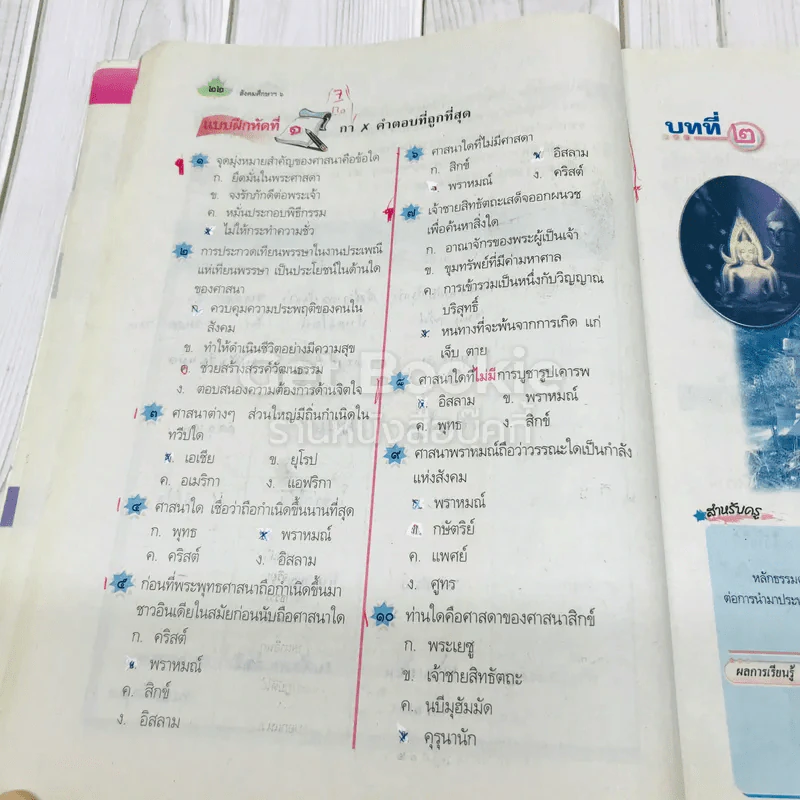 ๒๒ สังคมศึกษาฯ ๖
๗
๑๐
แบบฝึกหัดที่ ๑ กา × คำตอบที่ถูกที่สุด
๑ จุดมุ่งหมายสำคัญของศาสนาคือข้อใด
ก. ยึดมั่นในพระศาสดา
ข. จงรักภักดีต่อพระเจ้า
ค. หมั่นประกอบพิธีกรรม
ไม่ให้กระทำความชั่ว
๒ การประกวดเทียนพรรษาในงานประเพณี
แห่เทียนพรรษา เป็นประโยชน์ในด้านใด
ของศาสนา
ก. ควบคุมความประพฤติของคนใน
สังคม
ข. ทำให้ดำเนินชีวิตอย่างมีความสุข
ค. ช่วยสร้างสรรค์วัฒนธรรม
ง. ตอบสนองความต้องการด้านจิตใจ
๓ ศาสนาต่างๆ ส่วนใหญ่มีถิ่นกำเนิดใน
ทวีปใด
ก. เอเชีย ข. ยุโรป
ค. อเมริกา ง. แอฟริกา
๔ ศาสนาใด เชื่อว่าถือกำเนิดขึ้นนานที่สุด
ก. พุทธ ข. พราหมณ์
ค. คริสต์ ง. อิสลาม
๕ ก่อนที่พระพุทธศาสนาถือกำเนิดขึ้นมา
ชาวอินเดียในสมัยก่อนนับถือศาสนาใด
ก. คริสต์
ข. พราหมณ์
ค. สิกข์
ง. อิสลาม
๖ ศาสนาใดที่ไม่มีศาสดา
ก. สิกข์ ข. อิสลาม
ค. พราหมณ์ ง. คริสต์
๗ เจ้าชายสิทธัตถะเสด็จออกผนวช
เพื่อค้นหาสิ่งใด
ก. อาณาจักรของพระผู้เป็นเจ้า
ข. ขุมทรัพย์ที่มีค่ามหาศาล
ค. การเข้ารวมเป็นหนึ่งกับวิญญาณ
บริสุทธิ์
ง. หนทางที่จะพ้นจากการเกิด แก่
เจ็บ ตาย
๘ ศาสนาใดที่ไม่มีการบูชารูปเคารพ
ก. อิสลาม ข. พราหมณ์
ค. พุทธ ง. สิกข์
๙ ศาสนาพราหมณ์ถือว่าวรรณะใดเป็นกำลัง
แห่งสังคม
ก. พราหมณ์
ข. กษัตริย์
ค. แพศย์
ง. ศูทร
๑๐ ท่านใดคือศาสดาของศาสนาสิกข์
ก. พระเยซู
ข. เจ้าชายสิทธัตถะ
ค. นบีมุฮัมมัด
ง. คุรุนานัก
บทที่ ๒
สำหรับครู
หลักธรรม
ต่อการนำมาประ
ผลการเรียนรู้
Get Bookie
ร้านหนังสือบุ๊คกี้